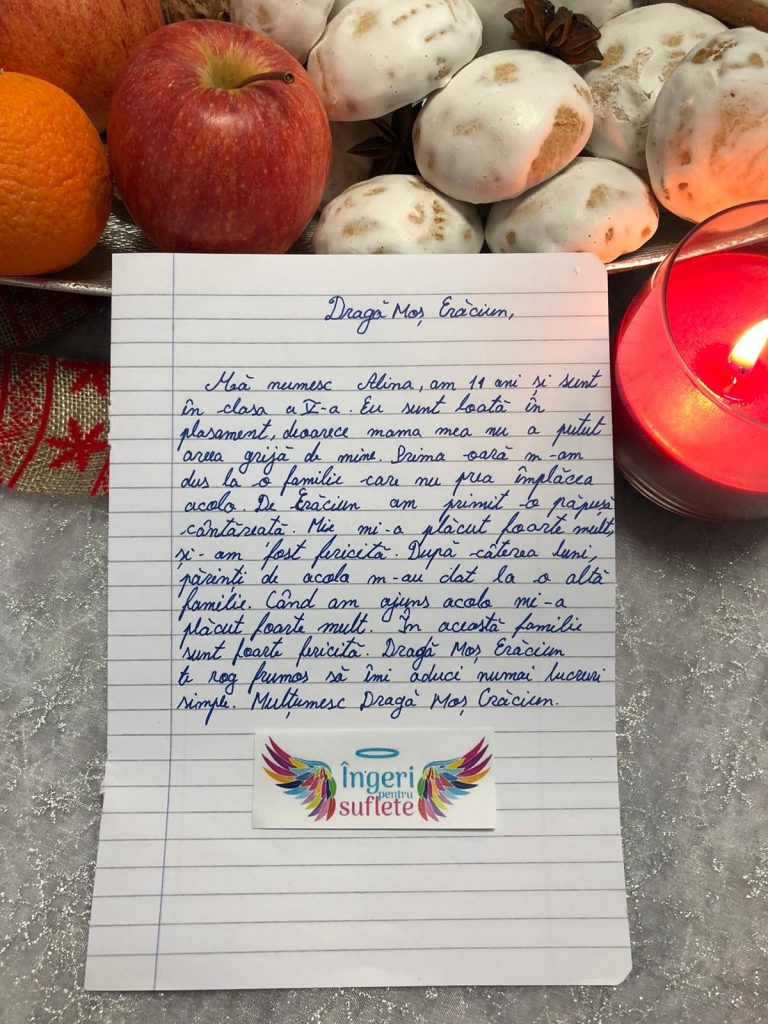 Dragă Moș Crăciun,
Mă numesc Alina, am 11 ani și sunt
în clasa a V-a. Eu sunt luată în
plasament, deoarece mama mea nu a putut
avea grijă de mine. Prima oară m-am
dus la o familie care nu prea împlăcea
acolo. De Crăciun am primit o păpușă
cântăreată. Mie mi-a plăcut foarte mult,
și-am fost fericită. După câterea luni,
părinți de acolo m-au dat la o altă
familie. Când am ajuns acolo mi-a
plăcut foarte mult. În această familie
sunt foarte fericită. Dragă Moș Crăciun
te rog frumos să îmi aduci numai lucruri
simple. Mulțumesc Dragă Moș Crăciun.
Îngeri
pentru
suflete